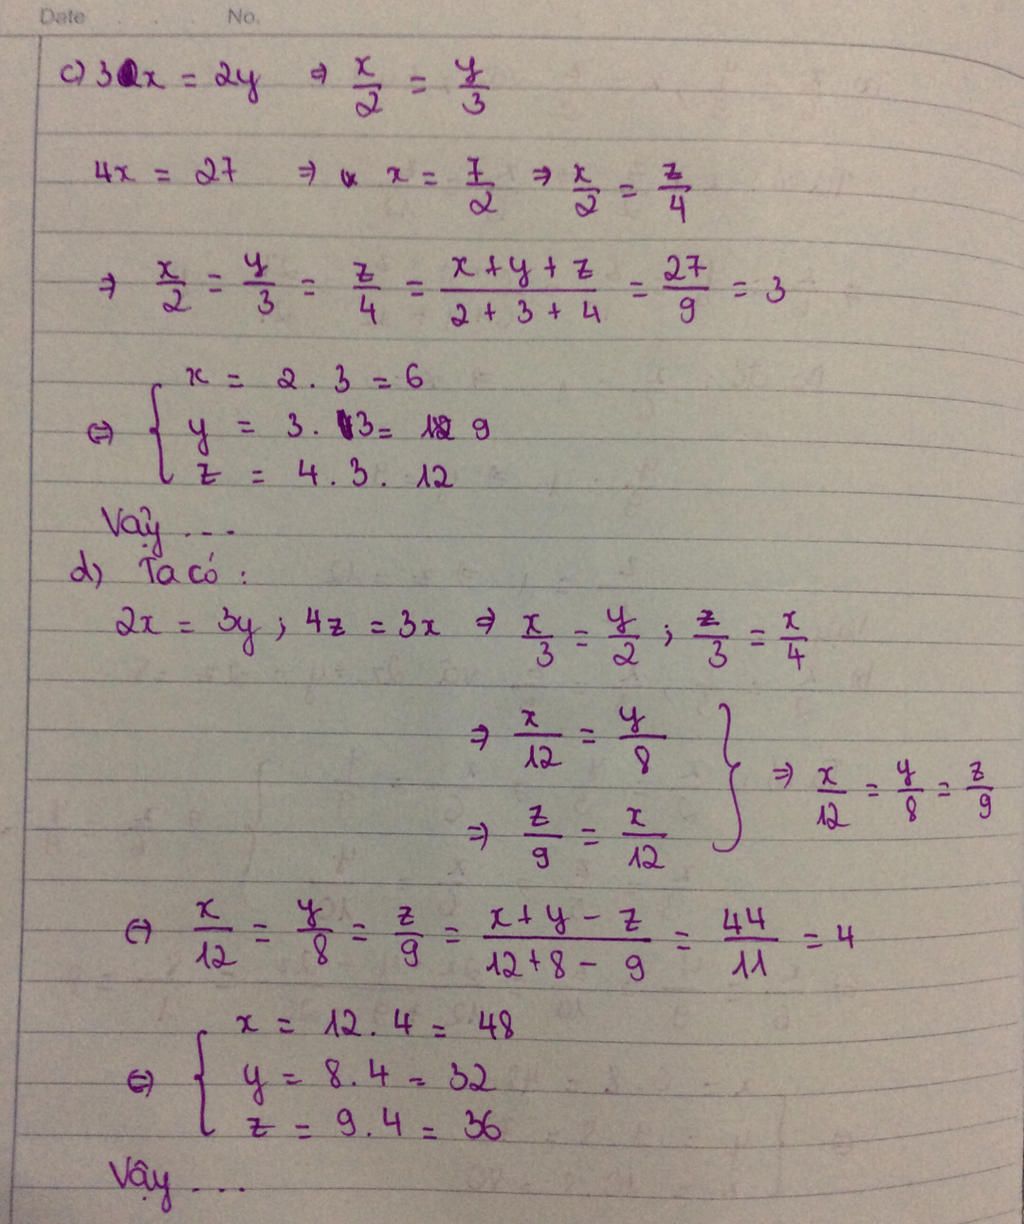 Date No.
c) 3x = 2y ⇒ x/2 = y/3
4x = 2z ⇒ x = z/2 ⇒ x/2 = z/4
⇒ x/2 = y/3 = z/4 = (x + y + z)/(2 + 3 + 4) = 27/9 = 3
⇔ { x = 2 . 3 = 6
y = 3 . 3 = 9
z = 4 . 3 . 12
Vậy ...
d) Ta có :
2x = 3y ; 4z = 3x ⇒ x/3 = y/2 ; z/3 = x/4
⇒ x/12 = y/8
⇒ z/9 = x/12 } ⇒ x/12 = y/8 = z/9
⇔ x/12 = y/8 = z/9 = (x + y - z)/(12 + 8 - 9) = 44/11 = 4
⇔ { x = 12 . 4 = 48
y = 8 . 4 = 32
z = 9 . 4 = 36
Vậy ...